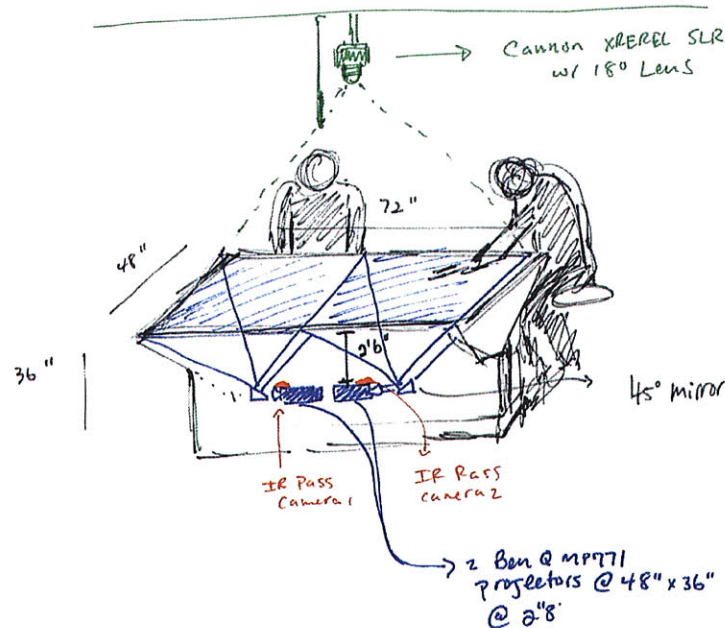 Cannon XREREL SLR
w/ 18° Lens
72"
48"
2'6"
36"
45° mirror
IR Pass
Camera1
IR Pass
camera2
2 BenQ MP771
projectors @ 48" x 36"
@ 2"8'